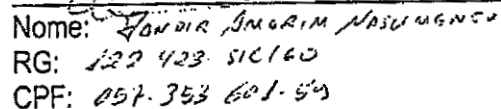 Nome: Jandir Amorim Nascimento
RG: 122 423 SIC/GO
CPF: 057.353 601-59